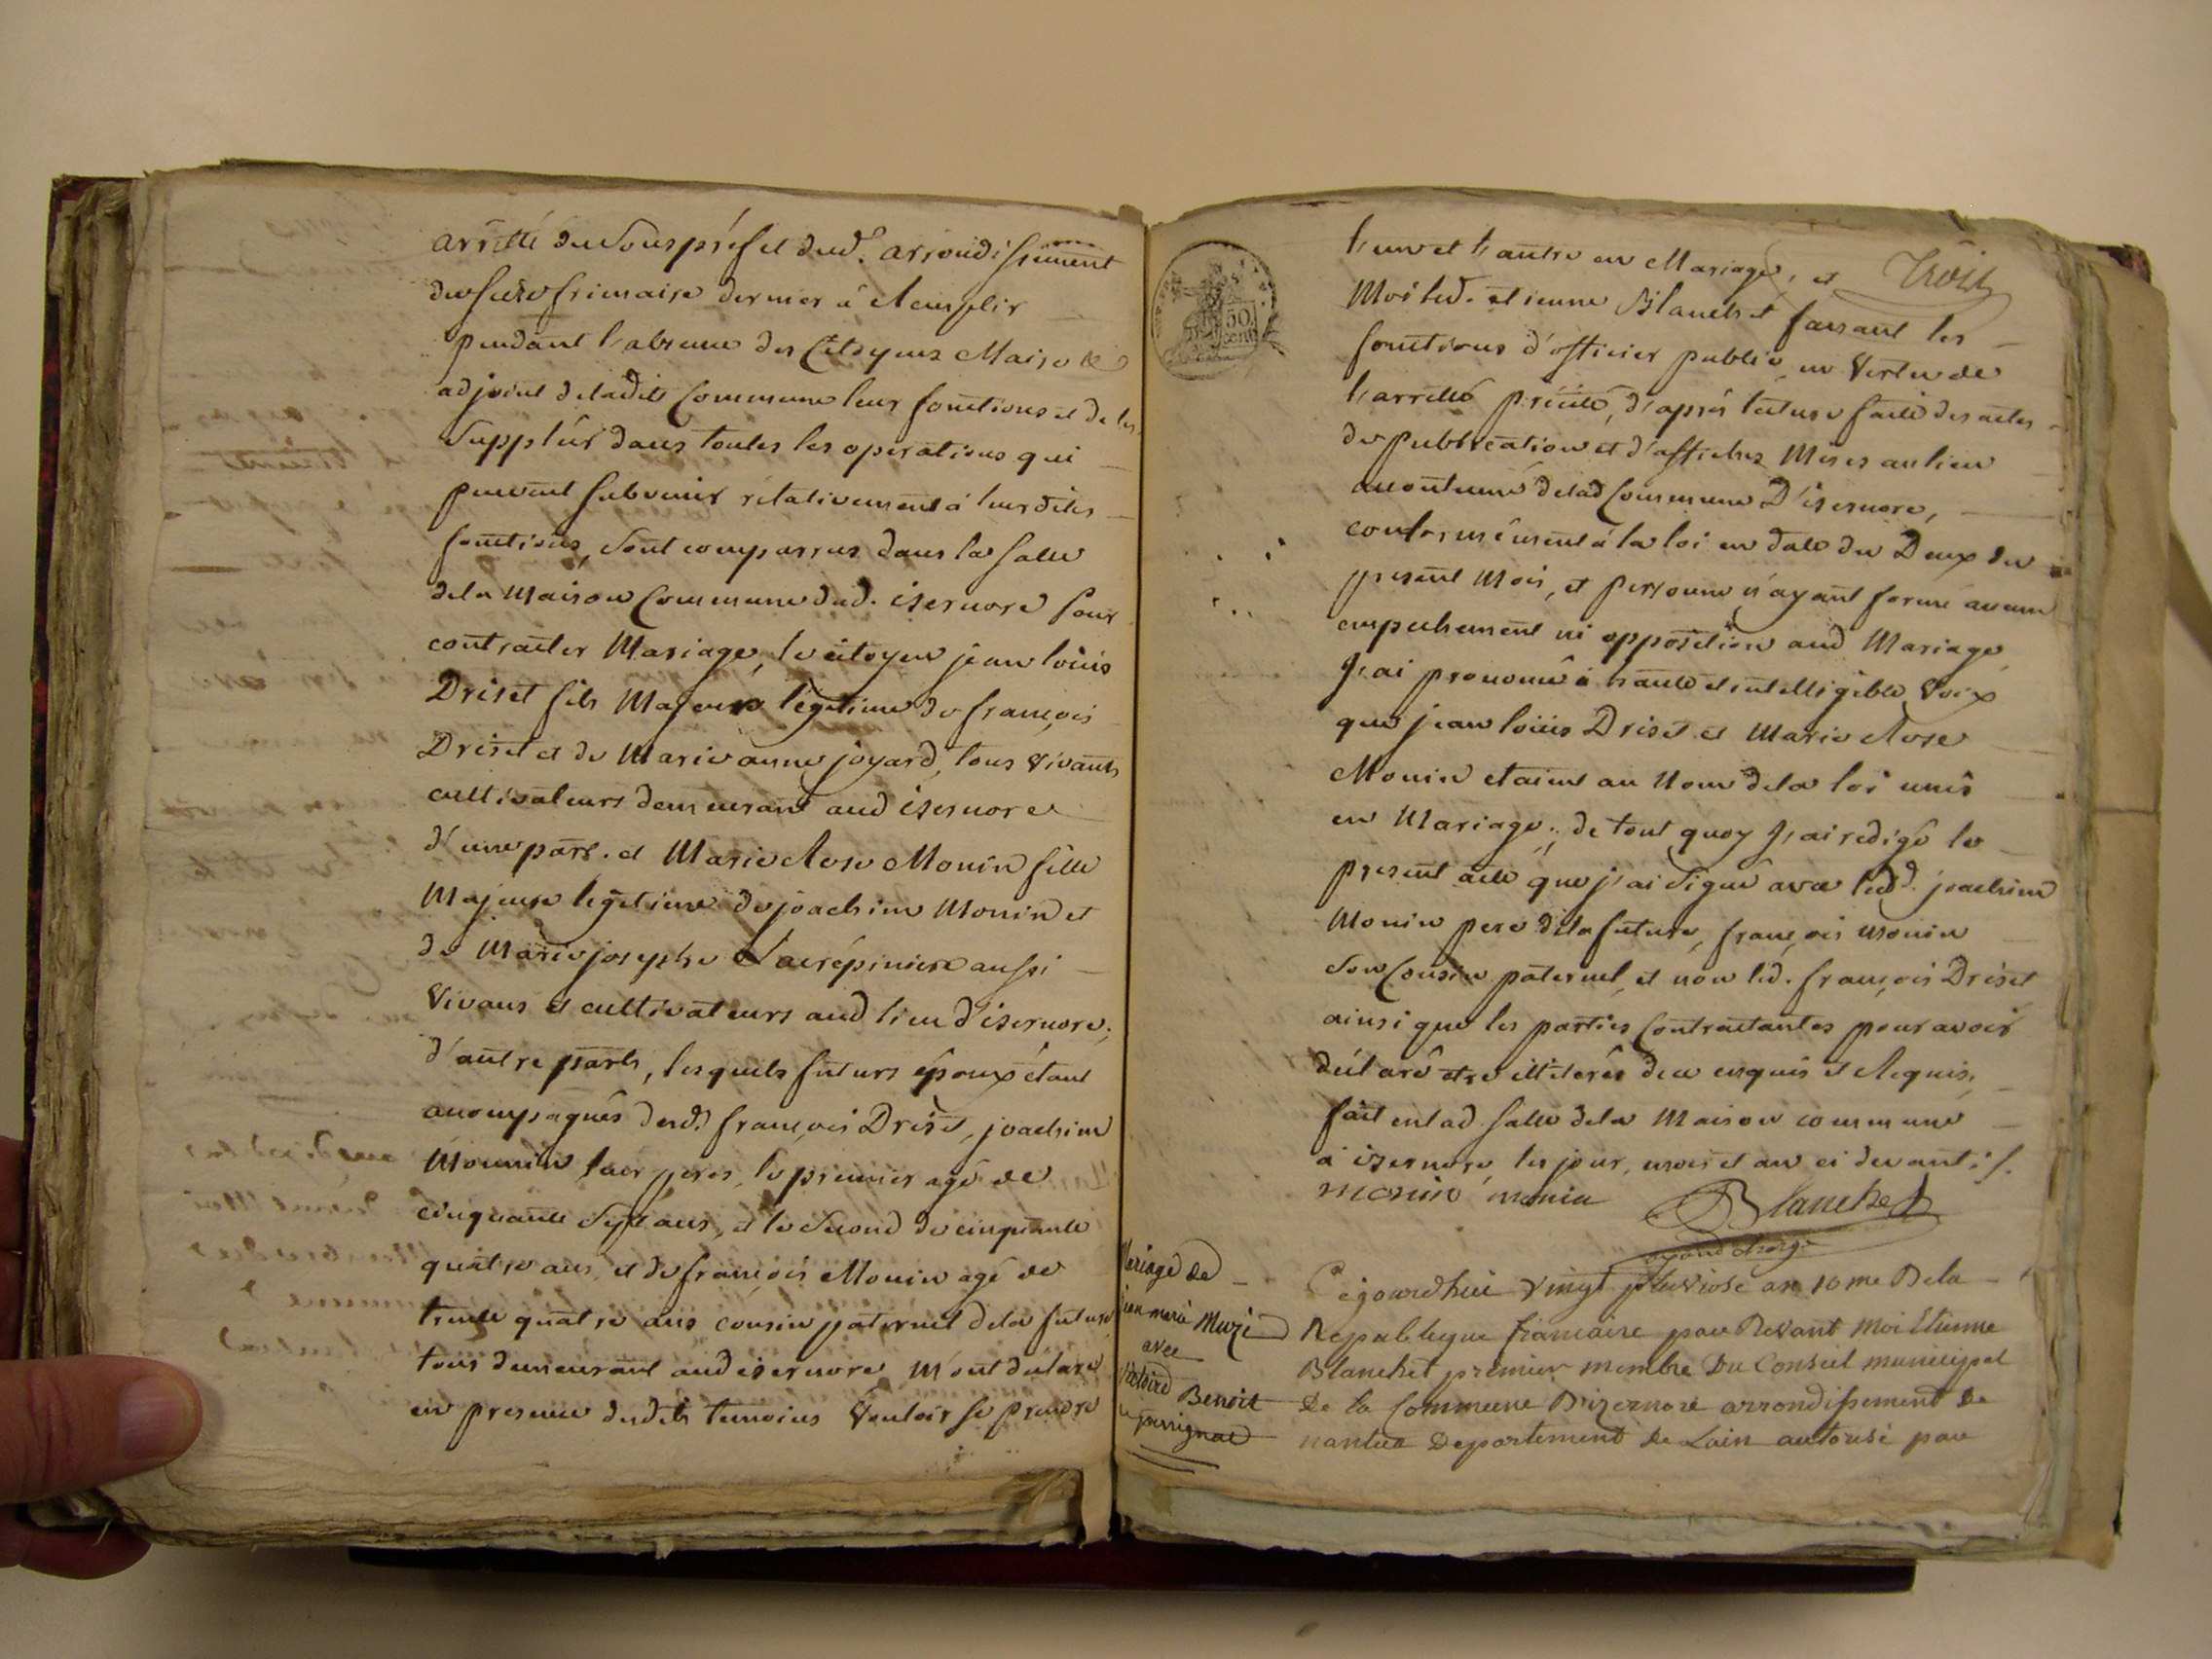 arrêtté du Sous préfet dud. arrondissement
du seize frimaire dernier à Remplir
pendant l'absence des Citoyens Maire &
adjoint deladite Commune leur fonctions et de les
Suppléer dans toutes les operations qui
peuvent subvenir rélativement à leursdites
fonctions, sont comparus dans la salle
dela Maison Commune dud. isernore pour
contracter Mariage, le citoyen jean loüis
Driset fils Majeur légitime de françois
Driset et de Marie anne joyard, tous vivants
cultivateurs demeurant aud isernore
d'une part. et Marie Rose Monin fille
Majeure legitime de joachim Monin et
de Marie josephe Lacrépiniere aussi
vivans et cultivateurs aud lieu d'isernore,
d'autre part, lesquels futurs époux étant
accompagnés desd. françois Driset, joachim
Mounin leur peres, le premier agé de
cinquante Sept ans, et le Second de cinquante
quatre ans, et de françois Monin agé de
trente quatre ans cousin paternel dela future
tous demeurant aud isernore M'ont declaré
en presence desdits temoins Vouloir se prendre
l'un et l'autre en Mariage, et
Troix
Moi led. etienne Blanchet faisant les
fonctions d'officier public en Vertu de
l'arretté précité, d'après lecture faite des actes
de publication et d'affiches Mises au lieu
accoutumé delad Commune D'isernore,
conformément à la loi en date du Deux du
present Mois, et personne n'ayant formé aucun
empechement ni opposition aud Mariage
J'ai prononcé à haute et intelligible Voix
que jean loüis Driset et Marie Rose
Monin etaient au Nom dela loi unis
en Mariage; de tout quoy J'ai redigé le
present acte que j'ai signé avec led. joachim
Monin pere dela future, françois monin
son Cousin paternel, et non led. françois Driset
ainsi que les parties Contractantes pour avoir
déclaré etre illiterés de ce enquis et Requis,
fait en lad. salle dela Maison commune
à izernore, les jour, mois et an ci devant
monin monin Blanchet
Mariage de
jean marie Muzi
avec
Benoit
Cejourdhui vingt pluviose an 10me Dela
Republique francaise par Devant Moi Etienne
Blanchet premier membre Du Conseil municipal
De la Commune Dizernore arrondissement De
nantua Departement De Lain autorisé par